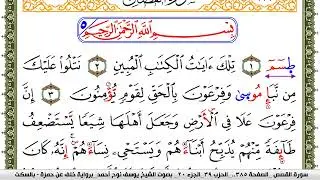 بِسْمِ اللَّهِ الرَّحْمَٰنِ الرَّحِيمِ
طسٓمٓ ١ تِلْكَ ءَايَٰتُ ٱلْكِتَٰبِ ٱلْمُبِينِ ٢ نَتْلُوا۟ عَلَيْكَ
مِن نَّبَإِ مُوسَىٰ وَفِرْعَوْنَ بِٱلْحَقِّ لِقَوْمٍ يُؤْمِنُونَ ٣ إِنَّ
فِرْعَوْنَ عَلَا فِي ٱلْأَرْضِ وَجَعَلَ أَهْلَهَا شِيَعًا يَسْتَضْعِفُ
طَآئِفَةً مِّنْهُمْ يُذَبِّحُ أَبْنَآءَهُمْ وَيَسْتَحْىِۦ نِسَآءَهُمْ إِنَّهُۥ كَانَ
سورة القصص _ الصفحة ٣٨٥.. الحزب ٣٩ .. الجزء ٢٠ بصوت الشيخ يوسف نوح أحمد رواية خلف عن حمزة - بالسكت